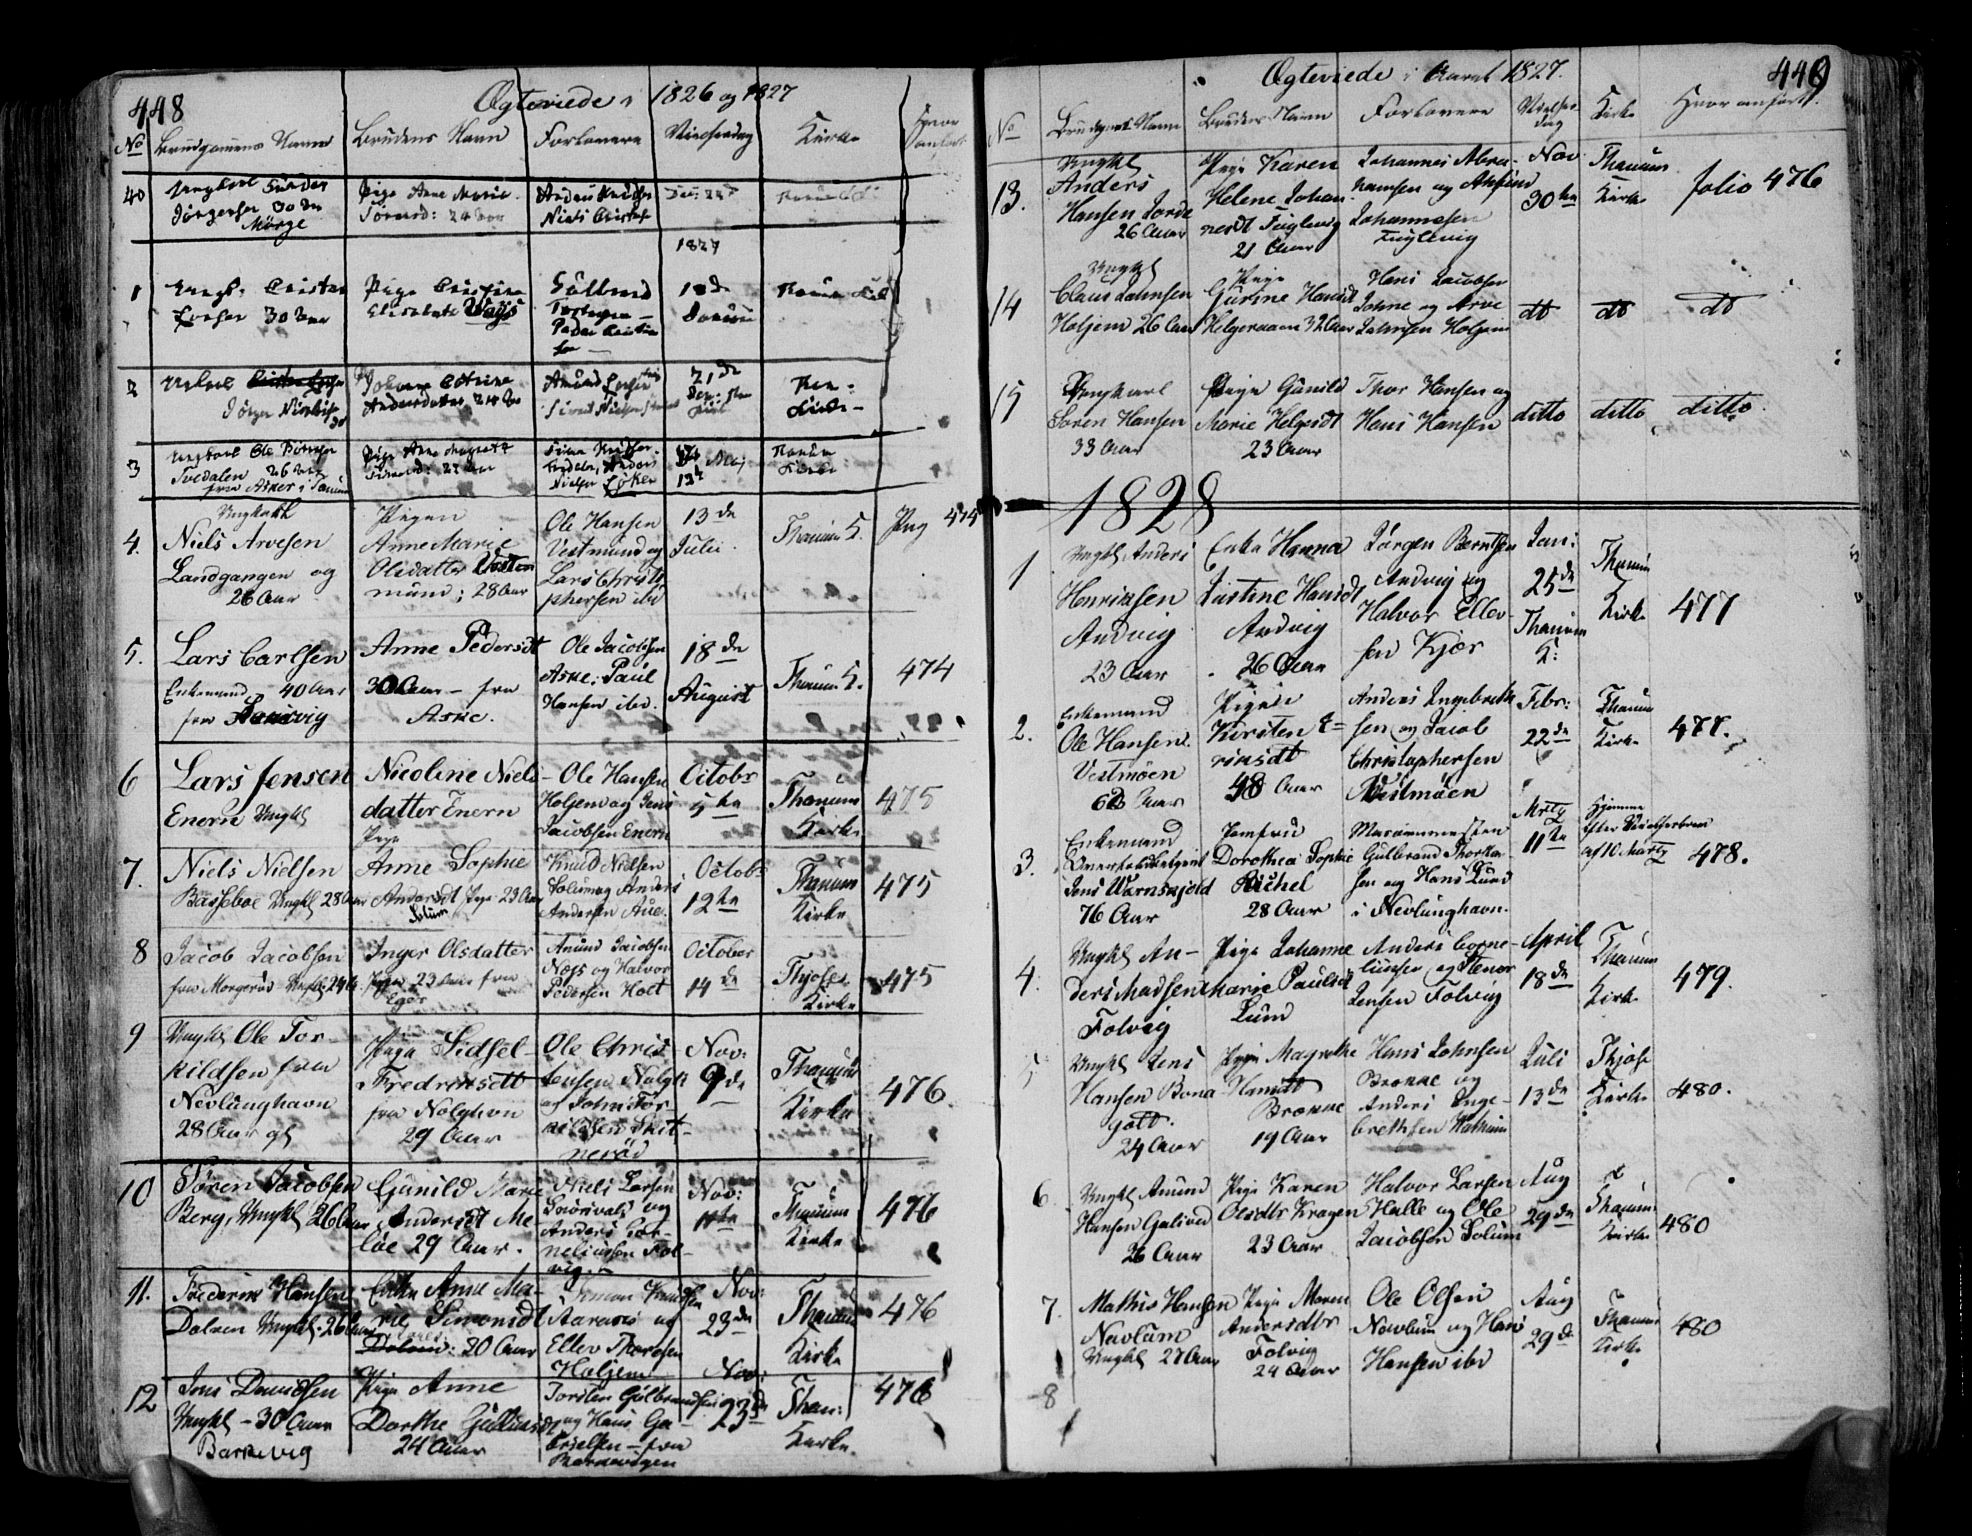 448
Ægteviede i 1826 og 1827
No Brudgomens Navn Brudens Navn Forlovere Vielsesdag Kirke Hvor anført
40 Ungkarl
Jørgensen 30 Aar
Pige Anne Marie
24 Aar
Anders
Niels
1827
1 Ungk. Christen
30 Aar
Pige Christine
Elisabeth
Peder
18de
Januar
2 Ungkarl
Jørgen
Johanne Cathrine
Andersdatter 24 Aar
Amund
21de
Kirke
3 Ungkarl Ole
Tvedalen 26 Aar
fra Aske i Tanum
Pige Anne Margrethe
Anders
Nielsen
Maj
Tanum
Kirke
4. Ungkarl
Niels Arvesen
Landgangen og
26 Aar
Pigen
Anne Marie
Olsdatter Vest
mund; 28 Aar
Ole Hansen
Vestmund og
Lars Christo
phersen ibd
13de
Julii.
Thanum K.
Pag 474
5. Lars Carlsen
Enkemand 40 Aar
fra
Anne Pedersdt
30 Aar – fra
Aske.
Ole Jacobsen
Aske. Paul
Hansen ibd.
18de
August
Thanum K.
474
6 Lars Jensen
Enern Ungkl
Nicoline Niels
datter Enern
Pige
Ole Hansen
Holjem og Jens
Jacobsen Enern
Octobr
5te
Thanum
Kirke
475
7. Niels Nielsen
Basseboe Ungkl 28 Aar
Anne Sophie
Andersdt Pige 23 Aar
Solum
Knud Nielsen
Solum og Anders
Andersen Aue.
Octobr
12te
Thanum
Kirke
475
8 Jacob Jacobsen
fra Mørgerød Ungkl. 24 A.
Inger Olsdatter
Pige 23 Aar fra
Eger
Amund Jacobsen
Næss og Halvor
Pedersen Holt
October
14de
Thjose
Kirke
475
9 Ungkl Ole Tor-
kildsen fra
Nevlunghavn
28 Aar gl
Pige Sidsel
Fredriksdt
fra Nølghvn
29 Aar
Ole Chris
tensen Nølgh
og John Tor-
kildsen Skit-
nerød
Nov:
9de
Thanum
Kirke
476.
10 Søren Jacobsen
Berg, Ungkl 26 Aar
Gunild Marie
Andersdt Me-
løe 29 Aar.
Niels Larsen
og
Anders Cor-
neliussen Fol-
vig.
Nov:
11te
Thanum
Kirke
476
11. Frederik Hansen
Dolven Ungkl. 26 Aar
Enke Anne Ma-
rie Simonsdt
Dolven: 30 Aar
Simon Knudsen
Aarøes og
Ellev Thoresen
Holjem
Nov:
23de
Thanum
Kirke
476
12 Jens Davidsen
Ungkl – 30 Aar
Barkevig
Pige Anne
Dorthe
24 Aar
Torsten Gulbrandsen
og Hans Ga-
brielsen – fra
Barkevigen
Nov:
23de
Than:
Kirke.
476
449
Ægteviede i Aaret 1827.
No Brudgoms Navn Brudens Navn Forlovere Vielses-
dag Kirke Hvor anført.
13. Ungkl
Anders
Hansen Jorde
26 Aar
Pige Karen
Helene Johan
nesdt Fuglevig
21 Aar
Johannes Abra-
hamsen og
Johannesen
Fuglevig
Nov
30te
Thanum
Kirke
folio 476
14 Ungkl
Claus Johnsen
Holjem 26 Aar
Pige
Gurine Hansdt
Helgeraaen 32 Aar
Hans Jacobsen
og Arve
Johnsen Holjem
do
do
do
15 Ungkarl
Søren Hansen
33 Aar
Pige Gunild
Marie Helgesdt
23 Aar
Thor Hansen og
Hans Hansen
ditto
ditto
ditto.
1828
1 Ungkl Anders
Henriksen
Andvig
23 Aar
Enke Hanna
Kistine Hansdt
Andvig
26 Aar
Jørgen Berntsen
Andvig og
Halvor Ellev-
sen Kjær
Jan:
25de
Thanum
K:
Thanum
Kirke
477
2. Enkemand
Ole Hansen.
Vestmøen
62 Aar
Pigen
Kirsten E=
riksdt
48 Aar
Anders Ingebreth
sen og Jacob
Christophersen
Vestmøen
Febr:
22de
Thanum
Kirke
477.
3. Enkemand
Jens Wernskjold
76 Aar
Jomfru
Dorothea Sophie
Richel
28 Aar
Gulbrand Thorka-
sen og Hans Lund
i Nevlunghavn.
Martz
11te
Hjemme
efter
af 10 Martz
478.
4. Ungkl An-
ders Madsen
Folvig
Pige Johanne
Marie Paulsdt
Lund
Anders Corne-
liusen og Stener
Jensen Folvig
April
18de
Thanum
Kirke
479.
5 Ungkl Jens
Hansen Bona
gott.
24 Aar
Pige Magrethe
Hansdt
Bronne
19 Aar
Hans Johnsen
Bronne og
Anders Inge-
brethsen
Juli
13de
Thjose
Kirke
480.
6. Ungkl Amund
Hansen
26 Aar
Pige Karen
Olsdtr Kragen
23 Aar
Halvor Larsen
Halle og Ole
Jacobsen Solum
Aug
29de
Thanum
Kirke
480
7. Mathis Hansen
Nevlum
Ungkl 27 Aar
Pige Maren
Andersdtr
Folvig
24 Aar
Ole Olsen
Nevlum og Hans
Hansen ibd
Aug
29de
Thanum
Kirke
480
8